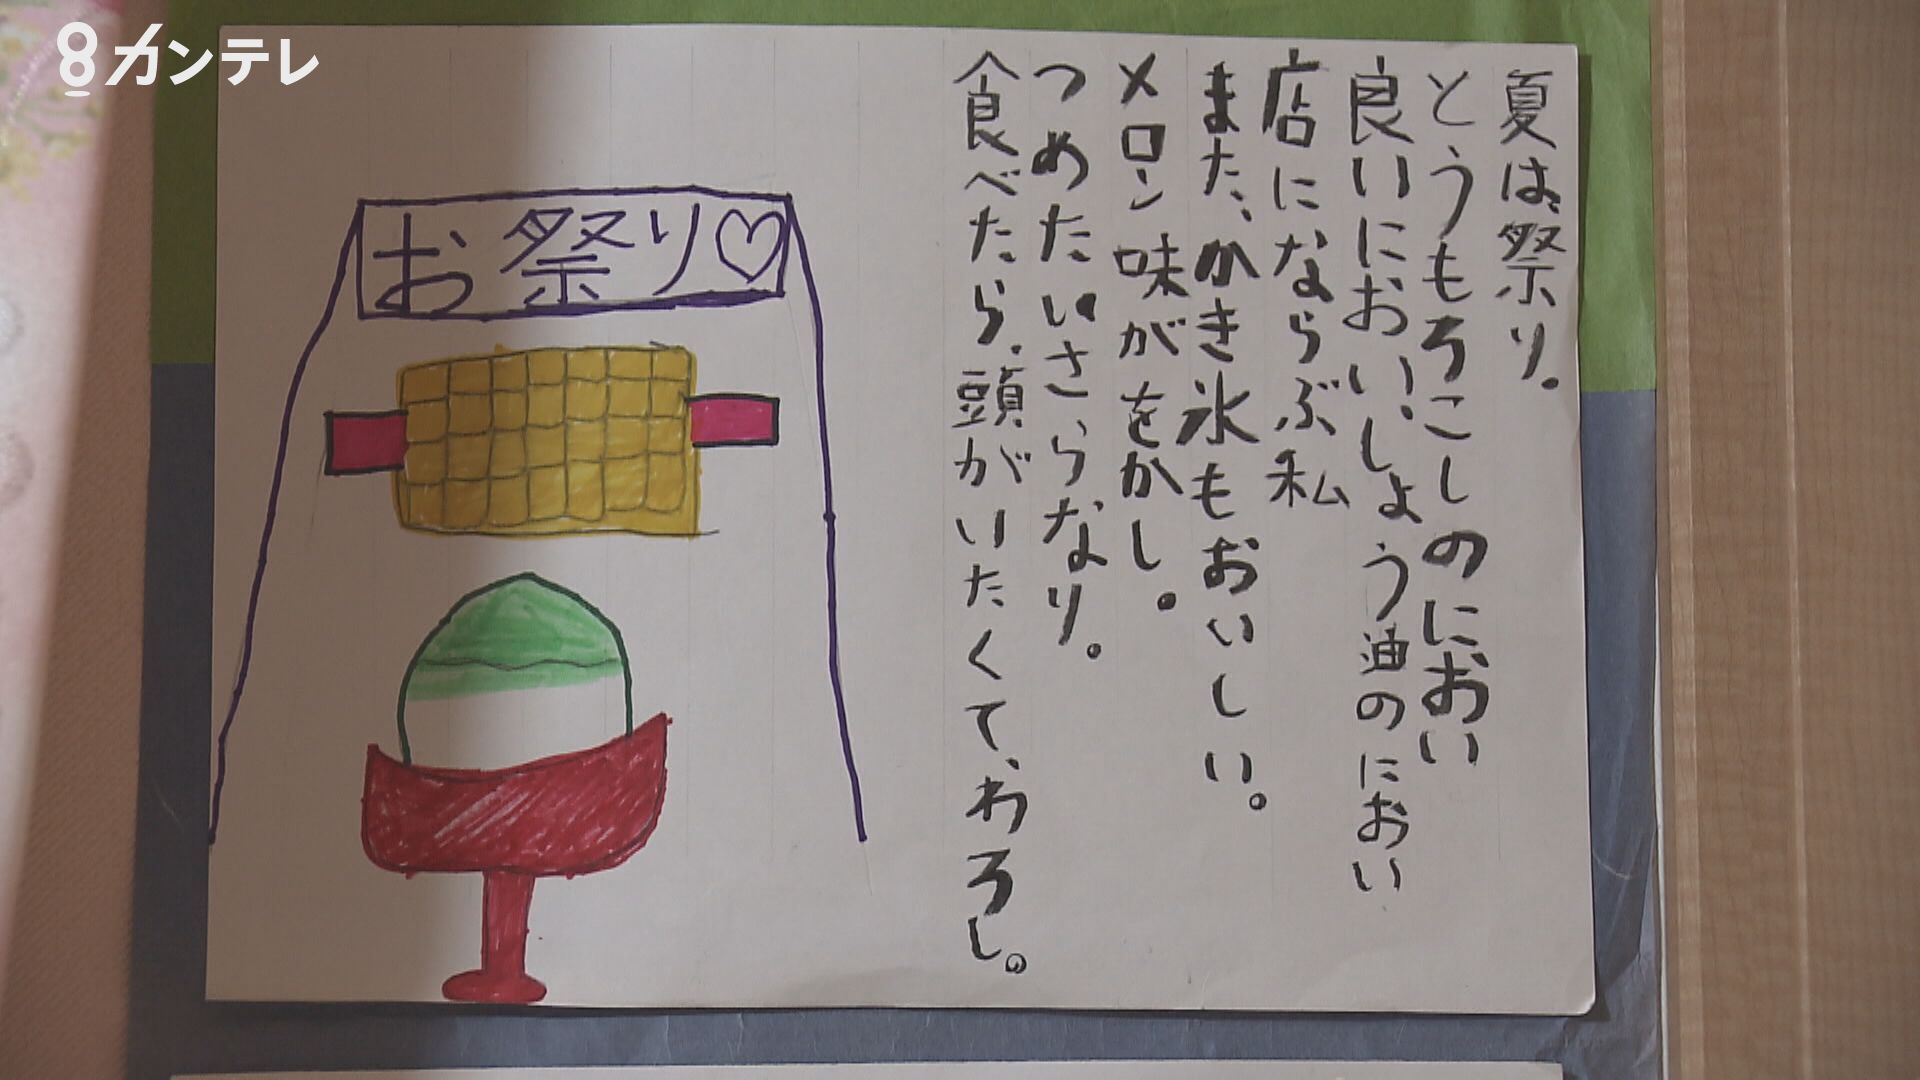 8カンテレ
夏は、祭り。
とうもろこしのにおい
良いにおい、しょう油のにおい
店にならぶ私
また、かき氷もおいしい。
メロン味がをかし。
つめたいさらなり。
食べたら、頭がいたくて、わろし。
お祭り♡